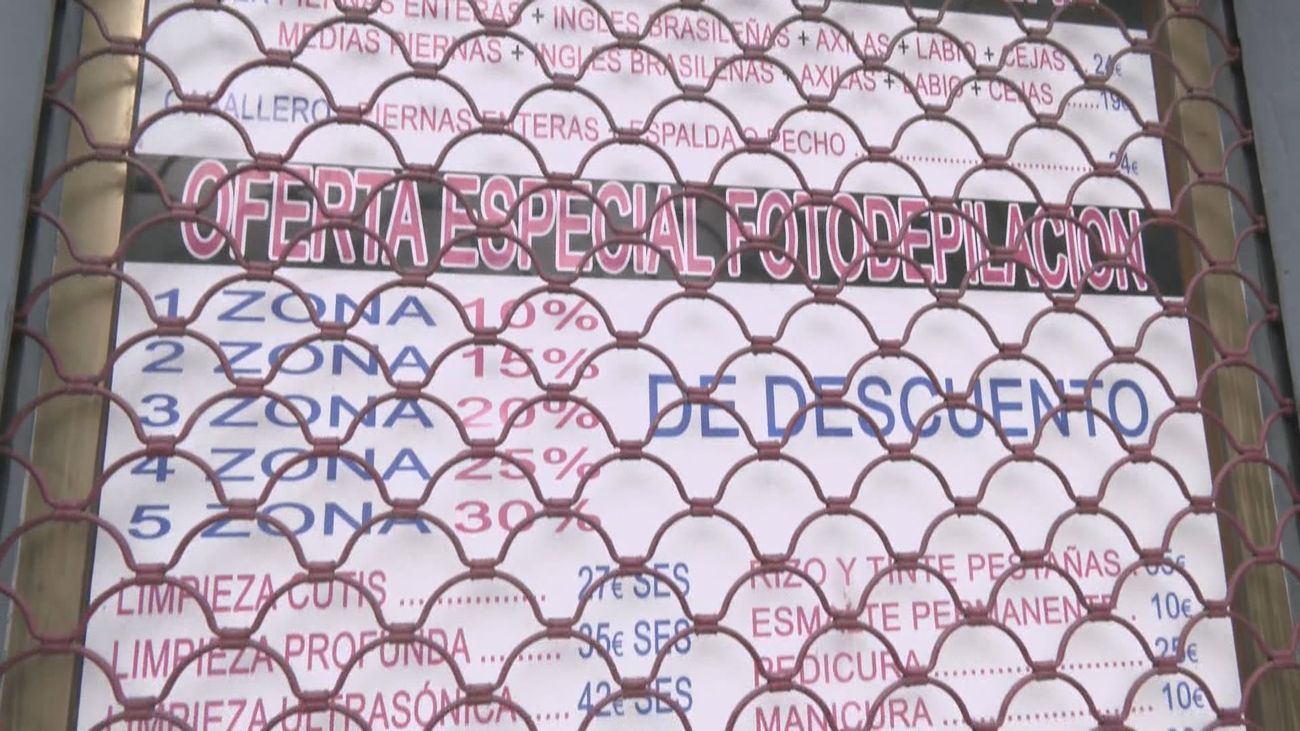 PIERNAS ENTERAS + INGLES BRASILEÑAS + AXILAS + LABIO + CEJAS .. 24€
MEDIAS PIERNAS + INGLES BRASILEÑAS + AXILAS + LABIO + CEJAS ...... 19€
CABALLERO PIERNAS ENTERAS + ESPALDA O PECHO ................................ 24€
OFERTA ESPECIAL FOTODEPILACION
1 ZONA 10%
2 ZONA 15%
3 ZONA 20%
4 ZONA 25%
5 ZONA 30%
DE DESCUENTO
LIMPIEZA CUTIS ................ 27€ SES
LIMPIEZA PROFUNDA ......... 35€ SES
LIMPIEZA ULTRASÓNICA ..... 42€ SES
RIZO Y TINTE PESTAÑAS
ESMALTE PERMANENTE . 10€
PEDICURA ........................ 25€
MANICURA ....................... 10€